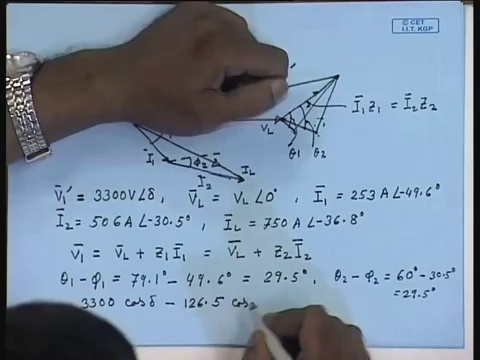 © CET
I.I.T. KGP
V̄L
θ1 θ2
Ī1Z1 = Ī2Z2
Ī1
φ2
Ī2
ĪL
V̄1' = 3300V∠δ , V̄L = VL∠0° , Ī1 = 253 A∠-49.6°
Ī2 = 506 A∠-30.5° , ĪL = 750 A∠-36.8°
V̄1 = V̄L + Z1Ī1 = V̄L + Z2Ī2
θ1 - φ1 = 79.1° - 49.6° = 29.5° , θ2 - φ2 = 60° - 30.5°
= 29.5°
3300 cosδ - 126.5 cos